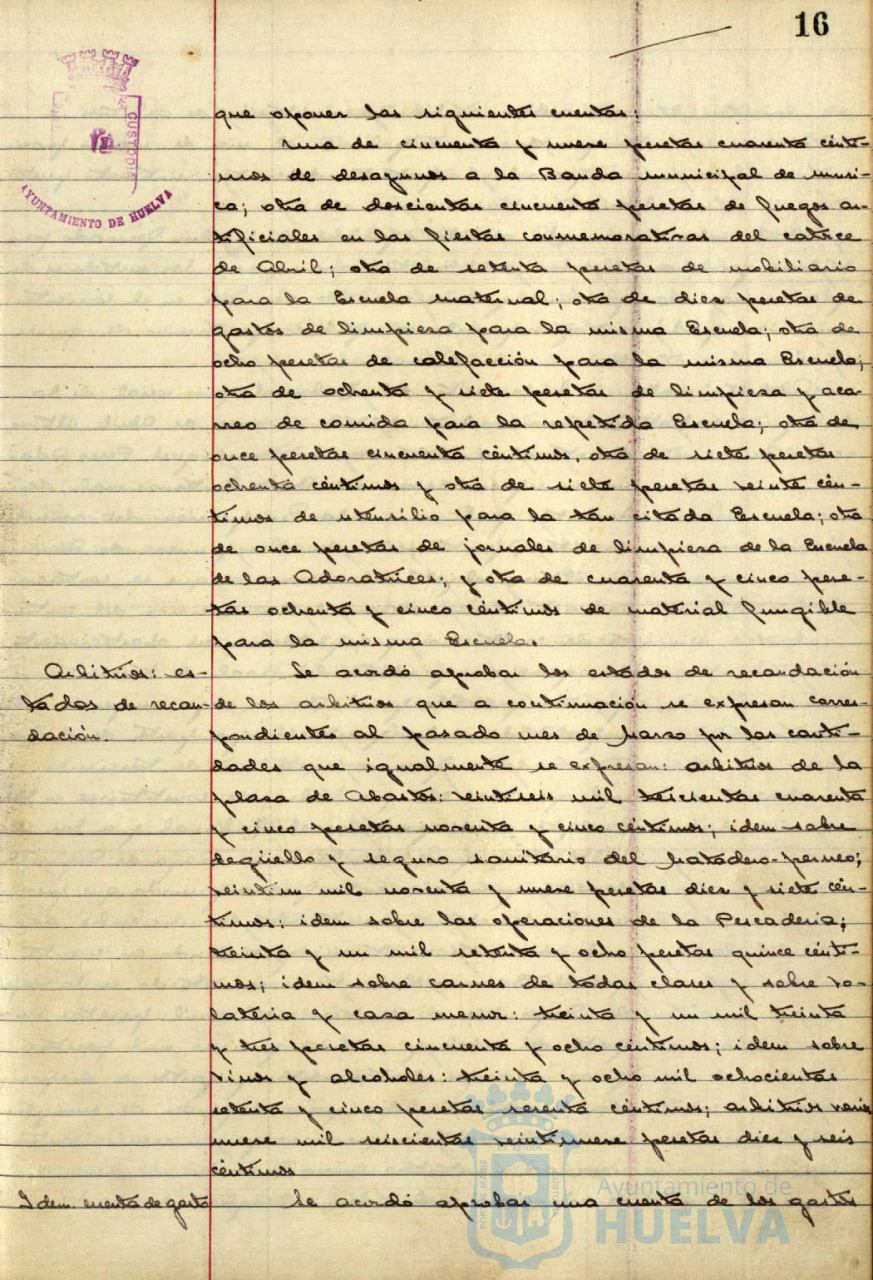 16
CUSTODIA
AYUNTAMIENTO DE HUELVA
que oponer las siguientes cuentas:
Una de cincuenta y nueve pesetas cuarenta cénti-
mos de desayunos a la Banda municipal de músi-
ca; otra de doscientas cincuenta pesetas de fuegos ar-
tificiales en las fiestas conmemorativas del catorce
de Abril; otra de setenta pesetas de mobiliario
para la Escuela maternal; otra de diez pesetas de
gastos de limpieza para la misma Escuela; otra de
ocho pesetas de calefacción para la misma Escuela;
otra de ochenta y siete pesetas de limpieza y aca-
rreo de comida para la repetida Escuela; otra de
once pesetas cincuenta céntimos, otra de siete pesetas
ochenta céntimos y otra de siete pesetas veinte cén-
timos de utensilio para la tan citada Escuela; otra
de once pesetas de jornales de limpieza de la Escuela
de las Adoratrices; y otra de cuarenta y cinco pese-
tas ochenta y cinco céntimos de material fungible
para la misma Escuela.
Arbitrios: es-
tados de recau-
dación.
Se acordó aprobar los estados de recaudación
de los arbitrios que a continuación se expresan corres-
pondientes al pasado mes de Marzo por las canti-
dades que igualmente se expresan: arbitrios de la
plaza de Abastos: veintiseis mil trescientas cuarenta
y cinco pesetas noventa y cinco céntimos; idem sobre
degüello y seguro sanitario del Matadero-perneo;
veintiun mil noventa y nueve pesetas diez y siete cén-
timos; idem sobre las operaciones de la Pescaderia;
treinta y un mil setenta y ocho pesetas quince cénti-
mos; idem sobre carnes de todas clases y sobre vo-
lateria y caza menor: treinta y un mil treinta
y tres pesetas cincuenta y ocho céntimos; idem sobre
vinos y alcoholes: treinta y ocho mil ochocientas
setenta y cinco pesetas sesenta céntimos; arbitrios varios
nueve mil seiscientas veintinueve pesetas diez y seis
céntimos
Idem. cuenta de gasto
Se acordó aprobar una cuenta de los gastos
Ayuntamiento de
HUELVA